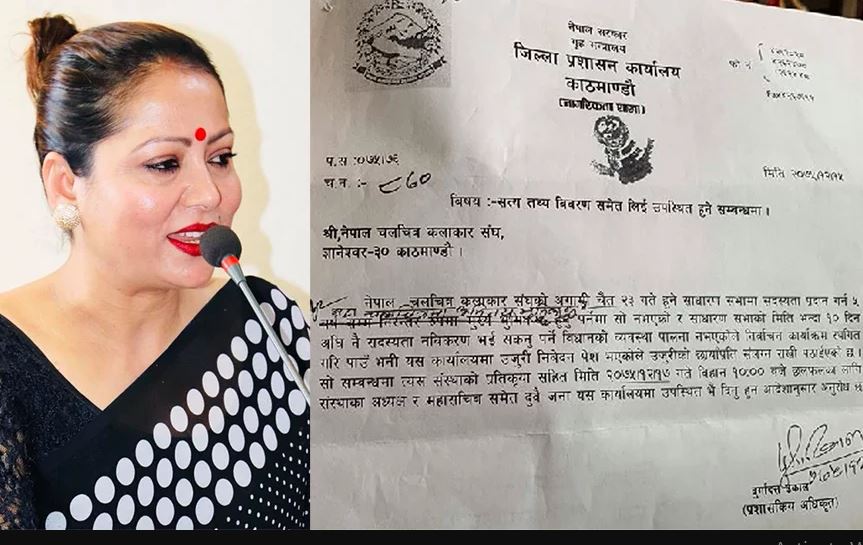 नेपाल सरकार
गृह मन्त्रालय
जिल्ला प्रशासन कार्यालय
काठमाण्डौ
(नागरिकता शाखा)
फो नं
प.स :०७५।७६
च.न :- ८६०
मिति २०७५।१२।१५
विषय :-सत्य तथ्य विवरण समेत लिई उपस्थित हुने सम्बन्धमा ।
श्री,नेपाल चलचित्र कलाकार संघ,
ज्ञानेश्वर-३० काठमाण्डौ ।
नेपाल चलचित्र कलाकार संघको अगामी चैत २३ गते हुने साधारण सभामा सदस्यता प्रदान गर्न ५
पर्नेमा सो नभएको र साधारण सभाको मिति भन्दा १० दिन
अघि नै सदस्यता नविकरण भई सक्नु पर्ने विधानको व्यवस्था पालना नभएकोले निर्वाचन कार्यक्रम स्थगित
गरि पाउँ भनी यस कार्यालयमा उजुरी निवेदन पेश भएकोले उजुरीको छायाँप्रति संलग्न राखी पठाईएको छ ।
सो सम्बन्धमा त्यस संस्थाको प्रतिकृया सहित मिति २०७५।१२।१७ गते विहान १०:०० बजे छलफलका लागि
संस्थाका अध्यक्ष र महासचिव समेत दुवै जना यस कार्यालयमा उपस्थित भै दिनु हुन आदेशानुसार अनुरोध छ
(प्रशासकिय अधिकृत)